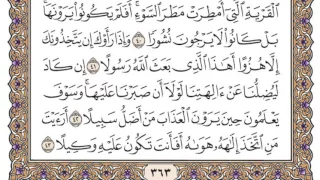 ٱلْقَرْيَةِ ٱلَّتِىٓ أُمْطِرَتْ مَطَرَ ٱلسَّوْءِ ۚ أَفَلَمْ يَكُونُوا۟ يَرَوْنَهَا ۚ
بَلْ كَانُوا۟ لَا يَرْجُونَ نُشُورًا ۝٤٠ وَإِذَا رَأَوْكَ إِن يَتَّخِذُونَكَ
إِلَّا هُزُوًا أَهَٰذَا ٱلَّذِى بَعَثَ ٱللَّهُ رَسُولًا ۝٤١ إِن كَادَ
لَيُضِلُّنَا عَنْ ءَالِهَتِنَا لَوْلَآ أَن صَبَرْنَا عَلَيْهَا ۚ وَسَوْفَ
يَعْلَمُونَ حِينَ يَرَوْنَ ٱلْعَذَابَ مَنْ أَضَلُّ سَبِيلًا ۝٤٢ أَرَءَيْتَ
مَنِ ٱتَّخَذَ إِلَٰهَهُۥ هَوَىٰهُ أَفَأَنتَ تَكُونُ عَلَيْهِ وَكِيلًا ۝٤٣
٣٦٣